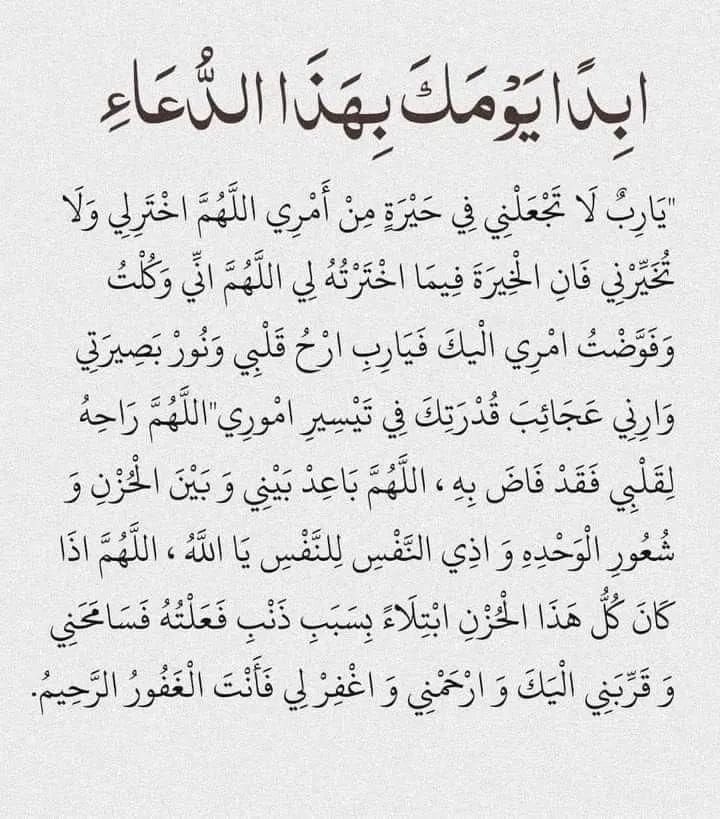 ابِدًا يَوْمَكَ بِهَذَا الدُّعَاءِ
"يَارِبٌ لَا تَجْعَلْنِي فِي حَيْرَةٍ مِنْ أَمْرِي اللَّهُمَّ اخْتَرلِي وَلَا
تُخَيِّرْنِي فَانِ الْخِيرَةَ فِيمَا اخْتَرْتُهُ لِي اللَّهُمَّ انِّي وَكُلْتُ
وَفَوَّضْتُ امْرِي الْيكَ فَيَارِبِ ارْحُ قَلْبِي وَنُورْ بَصِيرَتِي
وَارِنِي عَجَائِبَ قُدْرَتِكَ فِي تَيْسِيرِ امْورِي"اللَّهُمَّ رَاحِهُ
لِقَلْبِي فَقَدْ فَاضَ بِهِ ، اللَّهُمَّ بَاعِدْ بَيْنِي وَ بَيْنَ الْحُزْنِ وَ
شُعُورِ الْوَحْدِهِ وَ اذِي النَّفْسِ لِلنَّفْسِ يَا اللَّهُ ، اللَّهُمَّ اذَا
كَانَ كُلُّ هَذَا الْحُزْنِ ابْتِلَاءً بِسَبَبِ ذَنْبِ فَعَلْتُهُ فَسَامَحَنِي
وَ قَرِّبَنِي الْيَكَ وَ ارْحَمْنِي وَ اغْفِرْ لِي فَأَنْتَ الْغَفُورُ الرَّحِيمُ.